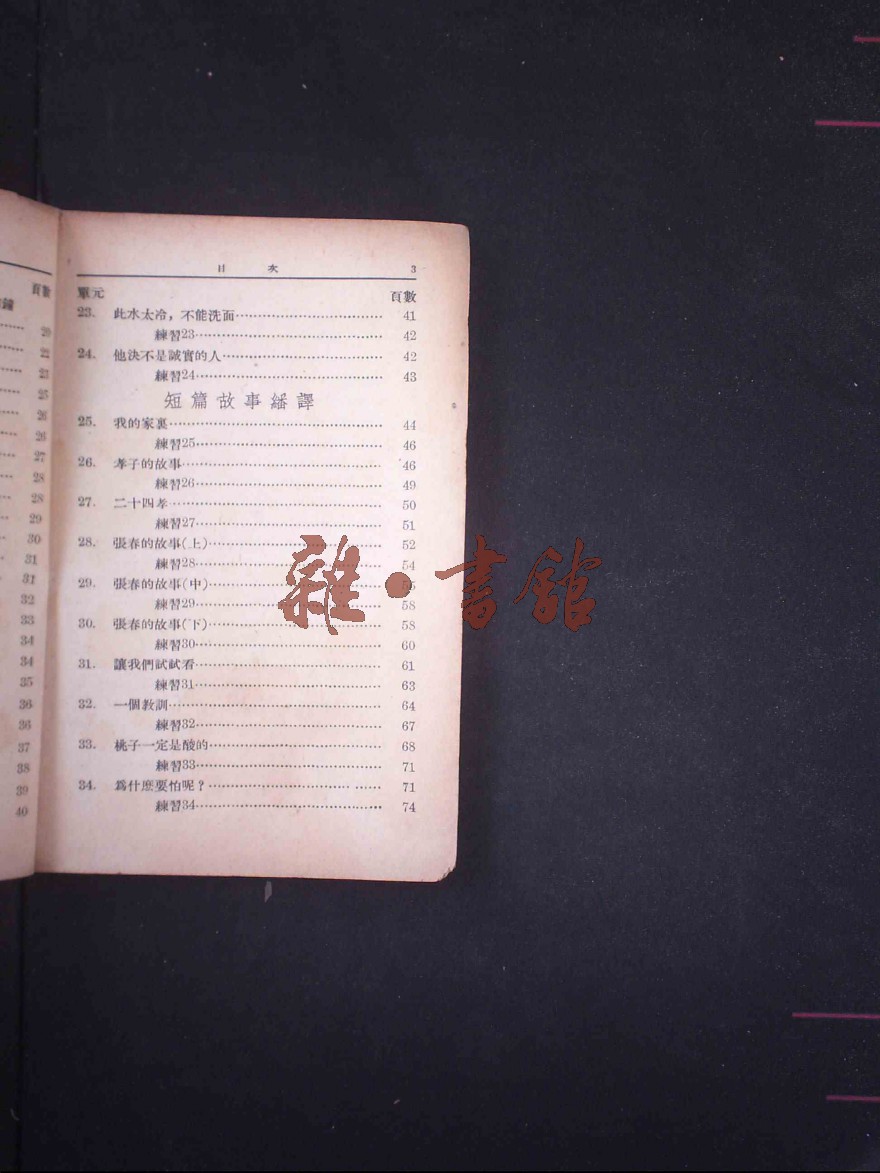 頁數
鐘
20
22
23
25
26
26
27
28
28
29
30
31
31
32
33
34
34
35
36
36
37
38
39
40
目 次 3
單元 頁數
23. 此水太冷，不能洗面 41
練習23 42
24. 他決不是誠實的人 42
練習24 43
短篇故事繙譯
25. 我的家裏 44
練習25 46
26. 孝子的故事 46
練習26 49
27. 二十四孝 50
練習27 51
28. 張春的故事(上) 52
練習28 54
29. 張春的故事(中) 55
練習29 58
30. 張春的故事(下) 58
練習30 60
31. 讓我們試試看 61
練習31 63
32. 一個教訓 64
練習32 67
33. 桃子一定是酸的 68
練習33 71
34. 爲什麽要怕呢？ 71
練習34 74
雜·書館